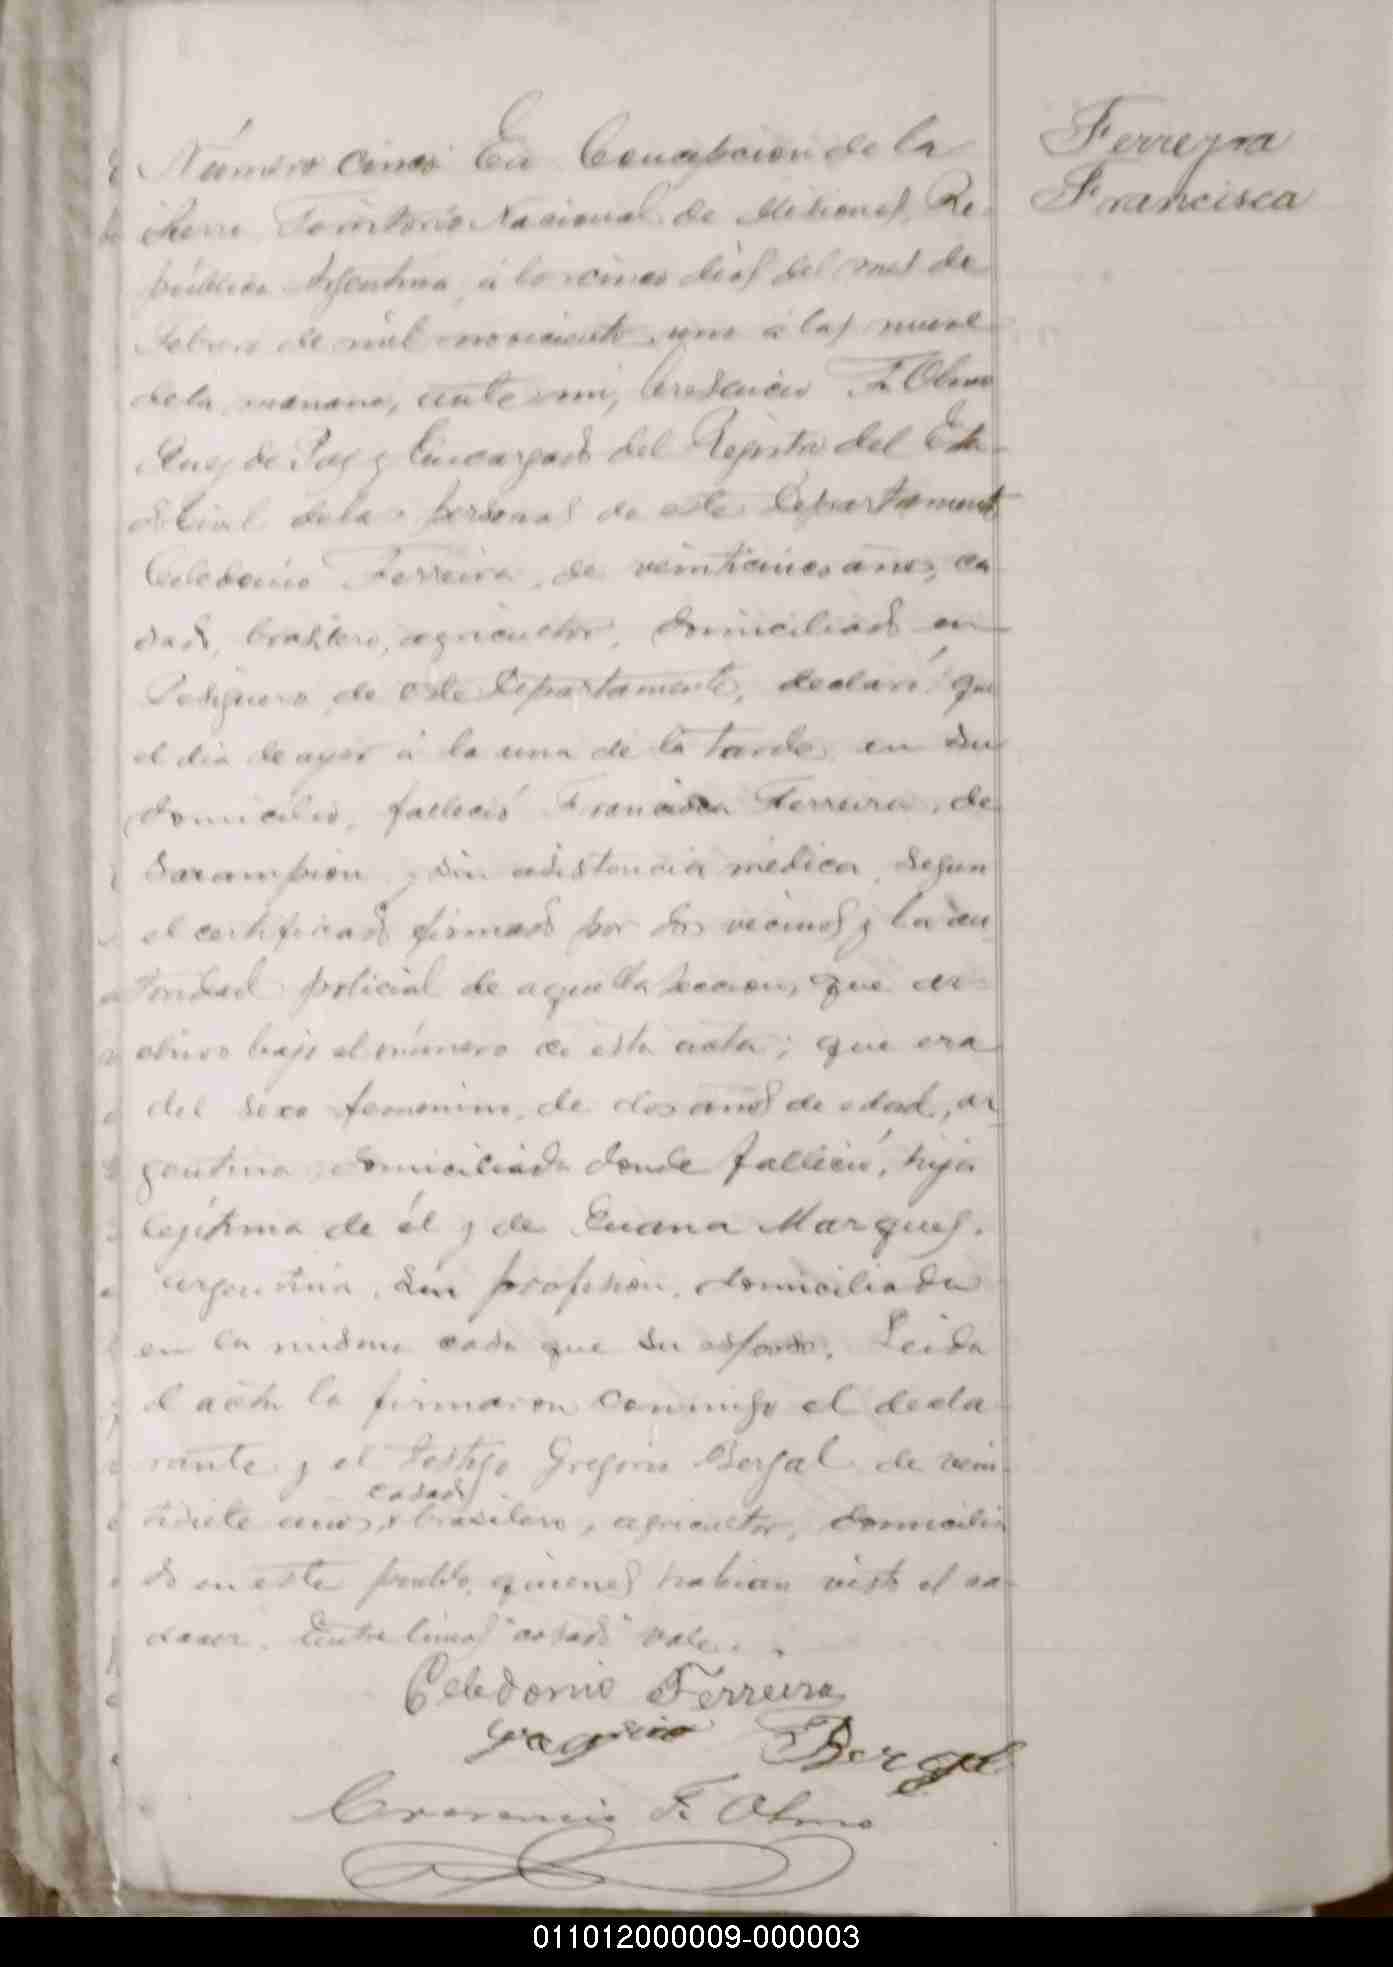 Ferreyra
Francisca
Número cinco En Concepcion de la
Sierra Territorio Nacional de Misiones, Re-
pública Argentina, á los cinco dias del mes de
Febrero de mil novecientos uno á las nueve
de la manana, ante mi, Crescencio F. Olmo
Juez de Paz y Encargado del Registro del Esta-
do Civil de las personas de este Departamento
Celedonio Ferreira, de veinticinco anos, ca
sado, brasilero, agricultor, domiciliado en
Persiguero, de este Departamento, declaró: que
el dia de ayer á la una de la tarde, en su
domicilio, falleció Francisca Ferreira, de
sarampion, sin asistencia medica, segun
el certificado firmado por dos vecinos y la au
toridad policial de aquella seccion, que ar-
chivo bajo el número de esta acta; que era
del sexo femenino, de dos anos de edad, ar
gentina, domiciliada donde falleció, hija
legítima de él y de Juana Marques.
argentina, sin profesion, domiciliada
en la misma casa que su esposo. Leida
el acta la firmaron conmigo el decla-
rante y el testigo Gregorio Bergal de vein-
casado
tisiete anos, brasilero, agricultor, domicilia
do en este pueblo, quienes habian visto el ca-
daver. Entre lineas "casado" vale.
Celedonio Ferreira
Bergal
Crecencio F. Olmo
011012000009-000003